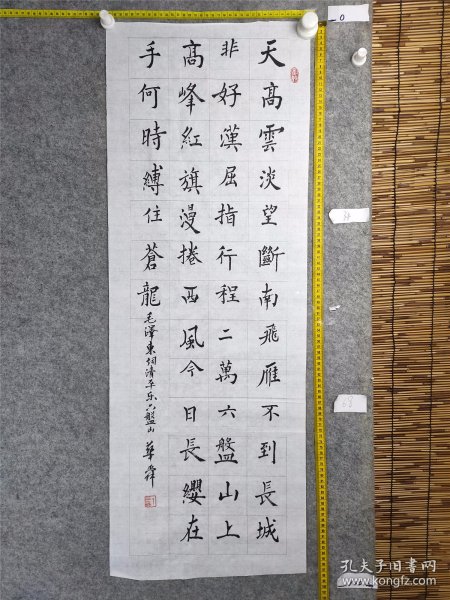 天高雲淡望斷南飛雁不到長城
非好漢屈指行程二萬六盤山上
高峰紅旗漫捲西風今日長纓在
手何時縛住蒼龍
毛澤東詞清平乐六盤山 華舜
0
孔夫子旧书网
www.kongfz.com